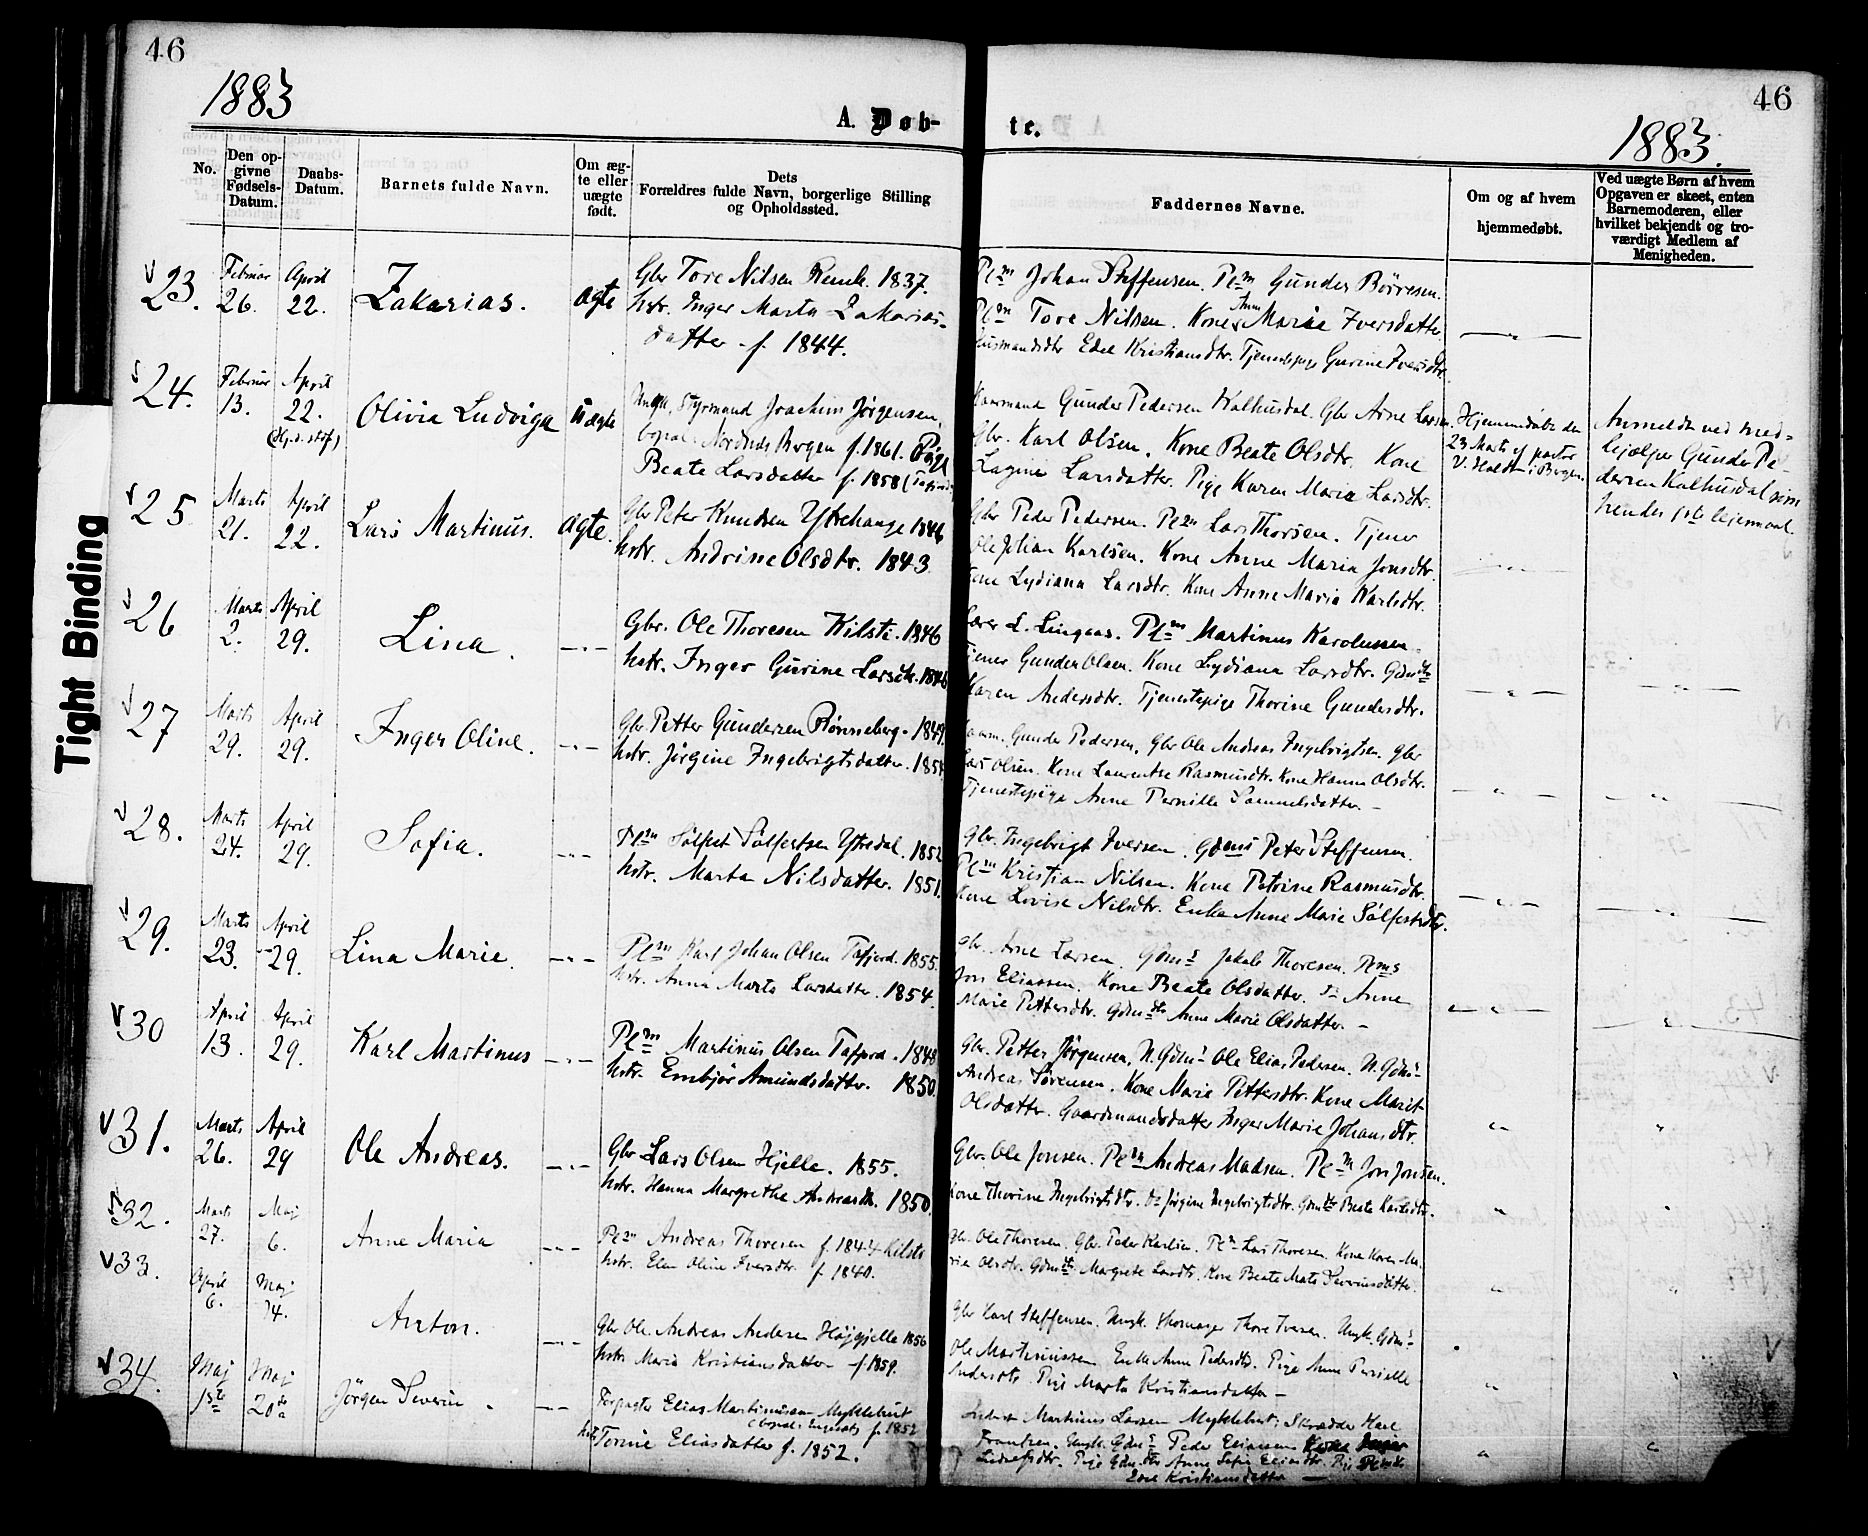 46
1883
A. Døb-
No.
Den op-
givne
Fødsels-
Datum.
Daabs-
Datum.
Barnets fulde Navn.
Om æg-
te eller
uægte
født.
Dets
Forældres fulde Navn, borgerlige Stilling
og Opholdssted.
46
1883.
te.
Faddernes Navne.
Om og af hvem
hjemmedøbt.
Ved uægte Børn af hvem
Opgaven er skeet, enten
Barnemoderen, eller
hvilket bekjendt og tro-
værdigt Medlem af
Menigheden.
Tight Binding
23.
Februar
26.
April
22.
Zakarias.
ægte
Gbr Tore Nilsen 1837.
hstr. Inger Marta Zakarias-
datter f. 1844.
Pl=m Johan Steffensen. Pl=m Gunder Børresen.
Pl=m Tore Nilsen. Kone Anne Marie Iversdatter
Husmandsdtr Edel Kristiansdtr. Tjenestepige Gurine Iversdtr.
24.
Februar
13.
April
22.
Olivia Ludviga
uægte
Ungk. Styrmand Joachim Jørgensen,
Nordnes Bergen f. 1861. Pige
Beate Larsdatter f. 1858
Gunder Pedersen Kalhusdal. Gbr Arne Larsen.
Gbr. Karl Olsen. Kone Beate Olsdtr. Kone
Larsdatter. Pige Karen Maria Larsdtr.
Hjemmedøbt den
23 Marts af pastor
V. i Bergen.
Anmeldt ved med-
hjælper Gunder Pe-
dersen Kalhusdal som
hendes 1ste lejermaal.
25
Marts
21.
April
22.
Lars Martinus.
ægte.
Gbr Peter Knudsen 1846
hstr. Andrine Olsdtr. 1843.
Gbr Peder Pedersen. Pl=m Lars Thorsen. Tjener
Ole Johan Karlsen. Kone Anne Maria Jonsdtr.
Kone Lydiana Larsdtr. Kone Anne Maria Karlsdtr.
26
Marts
2.
April
29.
Lina.
Gbr. Ole Thoresen Kilsti. 1846
hstr. Inger Gurine Larsdtr. 1846
Lærer L. Lingaas. Pl=m Martinus Karolussen.
Tjener Gunder Olsen. Kone Lydiana Larsdtr. Gdmdtr
Karen Andersdtr. Tjenestepige Thorine Gundersdtr.
27
Marts
29.
April
29.
Inger Oline.
Gbr Petter Gundersen Rønneberg. 1849.
hstr. Jørgine Ingebrigtsdatter. 1854
Gunder Pedersen. Gbr Ole Andreas Ingebrigtsen. Gbr
Lars Olsen. Kone Laurentse Rasmusdtr. Kone Hanna Olsdtr.
Tjenestepige Anne Pernille Samuelsdatter.
28.
Marts
24.
April
29.
Sofia.
Pl=m Sølfest Sølfestsen Ytredal. 1852
hstr. Marta Nilsdatter. 1851.
Gbr. Ingebrigt Iversen. Gdms Peter Steffensen.
Pl=m Kristian Nilsen. Kone Petrine Rasmusdtr.
Kone Lovise Nilsdtr. Enke Anne Marie Sølfestsdtr.
29.
Marts
23.
April
29.
Lina Marie.
Pl=m Karl Johan Olsen Tafjord. 1855.
hstr. Anna Marta Larsdatter. 1854.
Gbr. Arne Larsen. Gdms Jakob Thoresen. Plms
Jon Eliassen. Kone Beate Olsdatter. Do Anne
Marie Pettersdtr. Gdmdtr Anne Marie Olsdatter.
30
April
13.
April
29.
Karl Martinus
Pl=m Martinus Olsen Tafjord. 1848
hstr. Embjør Amundsdatter. 1850.
Gbr. Petter Jørgensen. U. Gdms Ole Elias Pedersen. U. Gdms
Andreas Sørensen. Kone Marie Pettersdtr. Kone Marit
Olsdatter. Gaardmandsdatter Inger Marie Johansdtr.
31.
Marts
26.
April
29
Ole Andreas.
Gbr Lars Olsen Hjelle. 1855.
hstr. Hanna Margrethe Andreasdtr. 1850.
Gbr. Ole Jonsen. Pl=m Andreas Madsen. Pl=m Jon Jonsen.
Kone Thorine Ingebrigtsdtr. Do Jørgine Ingebrigtsdtr. Gdmdtr Beate Karlsdtr.
32.
Marts
27.
Maj
6.
Anne Maria
Pl=m Andreas Thoresen f. 1844 Kilsti
hstr. Elen Oline Iversdtr. f. 1840.
Gbr. Ole Thoresen. Gbr. Peder Karlsen. Pl=m Lars Thoresen. Kone Karen Ma-
rie Olsdtr. Gdmdtr Margrete Larsdtr. Kone Beate Mate
33.
April
6.
Maj
14.
Anton.
Gbr Ole Andreas Andersen 1856
hstr Maria Kristiansdatter f. 1859.
Gbr Karl Steffensen. Ungk. Thore Iversen. Ungk. Gdms
Ole Martinussen Enke Anne Pedersdtr. Pige Anne Pernille
Andersdtr Pige Marta Kristiansdatter
34.
Maj
1ste
Maj
20de
Jørgen Severin
Forpagter Elias Martinussen Myklebust
f. 1852
hstr Tomine Eliasdatter f. 1852.
Martinus Larsen Myklebust. Skrædder Karl
Frantsen. Ungk. Gdms Peder Eliassen
Pige Gdmdtr Anne Sofie Eliasdtr. Pige
Edel Kristiansdatter